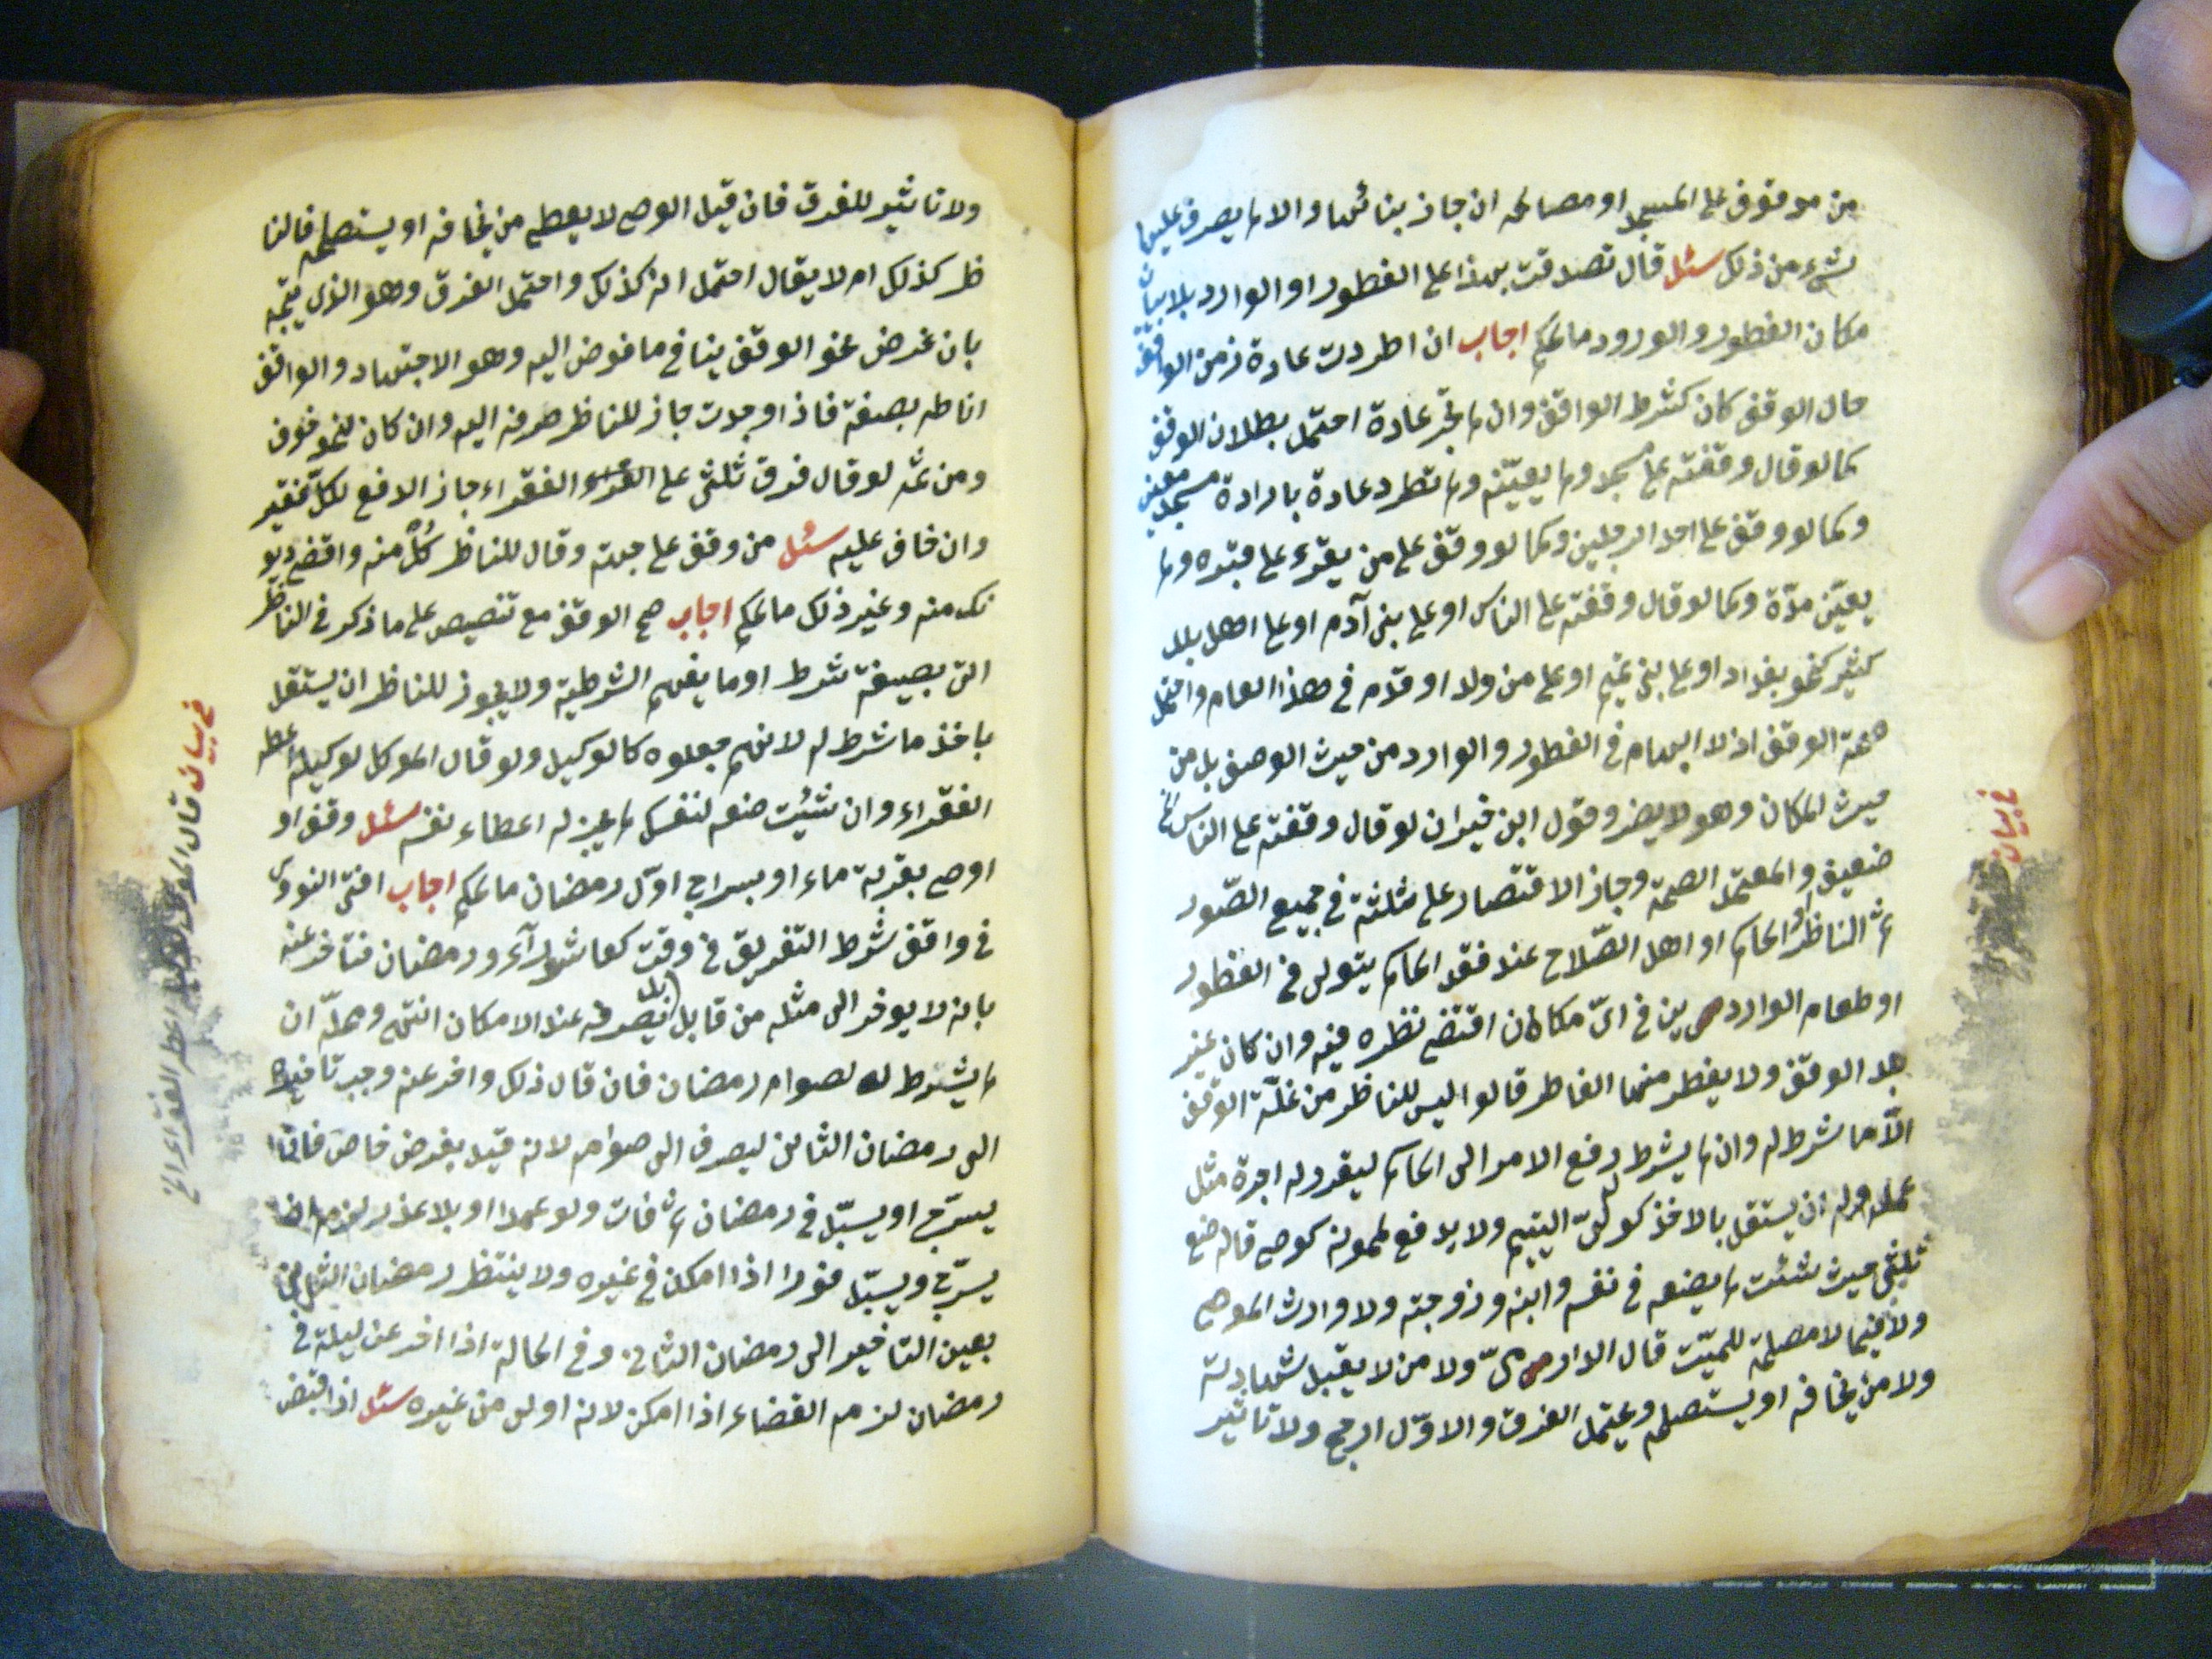 من موقوف على المسجد او مصالحه ان جاز بنائها والا لم يصرف عليها
شيء من ذلك سئل قال تصدقت بهذا على الفطور او الوارد بلا بيان
مكان الفطور والورود ما الحكم اجاب ان اطردت عادة زمن الواقف
حال الوقف كان كشرط الواقف وان لم تجر عادة احتمل بطلان الوقف
كما لو قال وقفته على مسجد ولم يعينه ولم تطرد عادة بارادة مسجد معين
وكما لو وقف على احد الرجلين وكما لو وقف على من يقرء على قبره ولم
يعيّن مدّة وكما لو قال وقفته على الناس او على بني آدم او على اهل بلد
كثير كنحو بغداد او على بني تميم او على من ولد او قدم في هذا العام واحتمل
صحة الوقف اذ لا ابهام في الفطور والوارد من حيث الوصف بل من
حيث المكان وهو لا يضر وقول ابن خيران لو قال وقفته على الناس الخ
ضعيف والمعتمد الصحة وجاز الاقتصار على ثلثة في جميع الصّور
ثم الناظر او الحاكم او اهل الصّلاح عند فقد الحاكم يتولى في الفطور
او طعام الواردين في ايّ مكان اقتضى نظره فيه وان كان غير
بلد الوقف ولا يفطر منها الفاطر قالوا ليس للناظر من غلّة الوقف
الّا ما شرط له وان لم يشرط رفع الامر الى الحاكم ليقرر له اجرة مثل
عمله وله ان يستقل بالاخذ كوليّ اليتيم ولا يدفع لممونه كوصي قال له ضع
ثلثي حيث شئت لم يضعه في نفسه وابنه وزوجته ولا وارث الموصي
ولا فيما لا مصلحة للميّت قال الدارميّ ولا من لا يقبل شهادته
ولا من يخافه او يستصلحه ويحتمل الفرق والاوّل ارجح ولا تاثير
في بيان
ولا تاثير للفرق فان قيل الوصي لا يعطيه من يخافه او يستصلحه فالنا
ظر كذلك ام لا يقال احتمل انه كذلك واحتمل الفرق وهو الذي يتجه
بان غرض نحو الوقف ينافي ما فوض اليه وهو الاجتهاد والواقف
اناطه بصفة فاذا وجدت جاز للناظر صرفه اليه وان كان لنحو خوف
ومن ثمه لو قال فرق ثلثي على الفقراء جاز الدفع لكلّ فقير
وان خاف عليه سئل من وقف على جهة وقال للناظر كُلْ منه واقض ديو
نك منه وغير ذلك ما الحكم اجاب صح الوقف مع تنصيص على ما ذكر في الناظر
اتى بصيغة شرط او ما يفهم الشرطية ولا يجوز للناظر ان يستقل
باخذ ما شرط له لانهم جعلوه كالوكيل ولو قال الموكل لوكيله اعطه
الفقراء وان شئت ضعه لنفسك لم يجز له اعطاء نفسه سئل وقف او
اوصى بقربة ماء او بسراج اوّل رمضان ما الحكم اجاب افتى النووي
في واقف شرط التفريق في وقت كعاشوراء ورمضان فتاخر عنه
بانه لا يوخر الى مثله من قابل بل يصرفه عند الامكان انتهى ومحلّه ان
لم يشترط له لصوام رمضان فان قال ذلك واخر عنه وجب تاخيره
الى رمضان الثاني ليصرف الى صوامه لانه قيد بغرض خاص فاتا
يسرّج او يسبّل في رمضان ثم فات ولو عمدا او بلا عذر لزمه ان
يسرّج ويسبّل فورا اذا امكن في غيره ولا ينتظر رمضان الثاني
بعين التاخير الى رمضان الثاني وفي الحالة اذا اخر عن ليلة في
رمضان لزمه القضاء اذا امكن لانه اولى من غيره سئل اذا قبض
في بيان قال الموكل لوكيله اعط الفقراء الخ